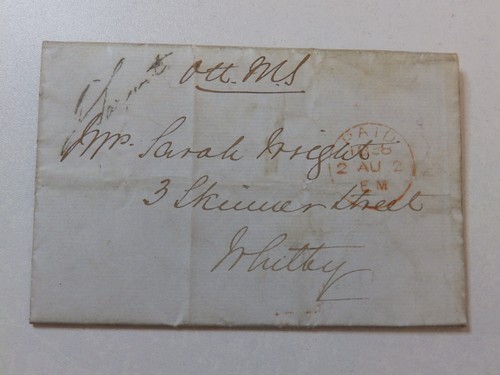 Oh. M.S
Mrs. Sarah Wright
3 Skinner Street
Whitby
PAID
2 AU 2